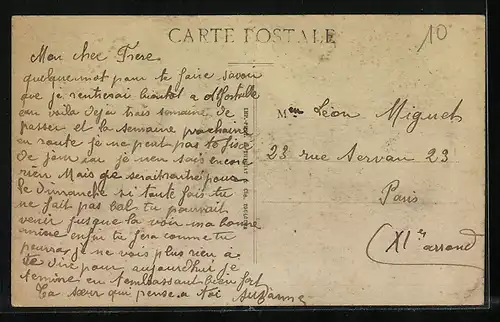 CARTE POSTALE
10
Mon cher Frere
quelque mot pour te faire savoir
que je rentierai bientot a
voila deja trois semaine de
passer et la semaine prochaine
en route je ne peut pas te fixe
de jour car je nen sais encore
rien Mais je serait rentré pour
le dimanche si tante fais tu
ne fait pas bal tu pourrait
venir jusque la voir ma bonne
mine enfin tu fera comme tu
peurra je ne vois plus rien à
te dire pour aujourd'hui je
termine en t'embrassant bien fort
Ta sœur qui pense a toi Suzanne
Léon Miguet
23 rue Servan 23
Paris
(XIe arrond)